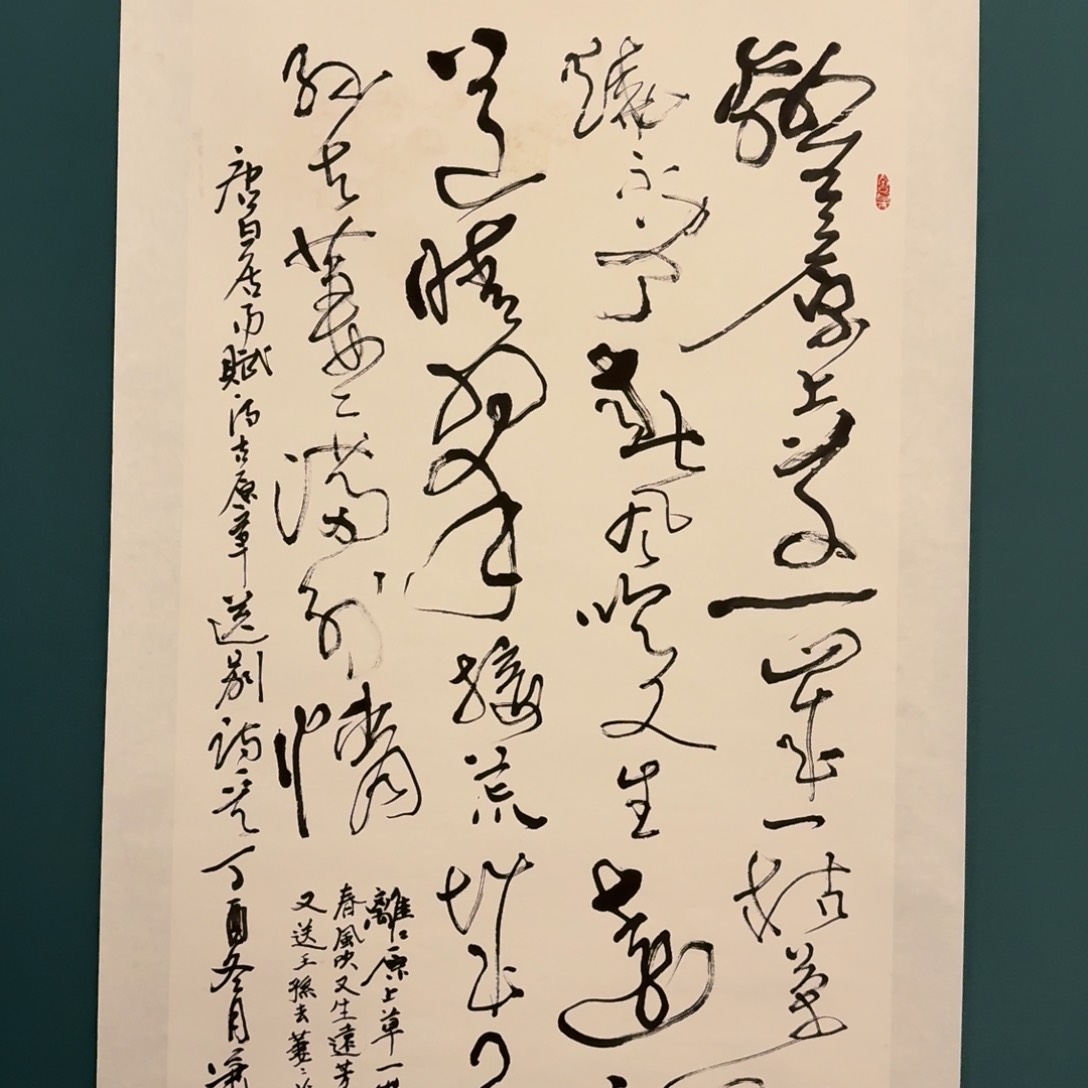 離々原上草一歲一枯榮
燒不盡春風吹又生遠
道晴翠接荒城又
孫去萋々滿別情
唐白居易賦得古原草送別詩丁酉冬月
離々原上草一
春風吹又生遠芳
又送王孫去萋々